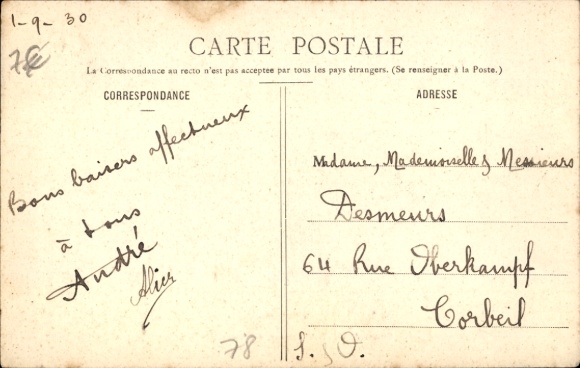 1-9-30
7€
CARTE POSTALE
La Correspondance au recto n'est pas acceptée par tous les pays étrangers. (Se renseigner à la Poste.)
CORRESPONDANCE
Bons baisers affectueux
à tous
André
Alice
78
ADRESSE
Madame, Mademoiselle & Messieurs
Desmeurs
64 Rue Oberkampf
Corbeil
S. & O.